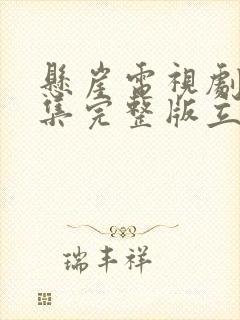 懸崖電視劇
集完整版立
瑞丰祥